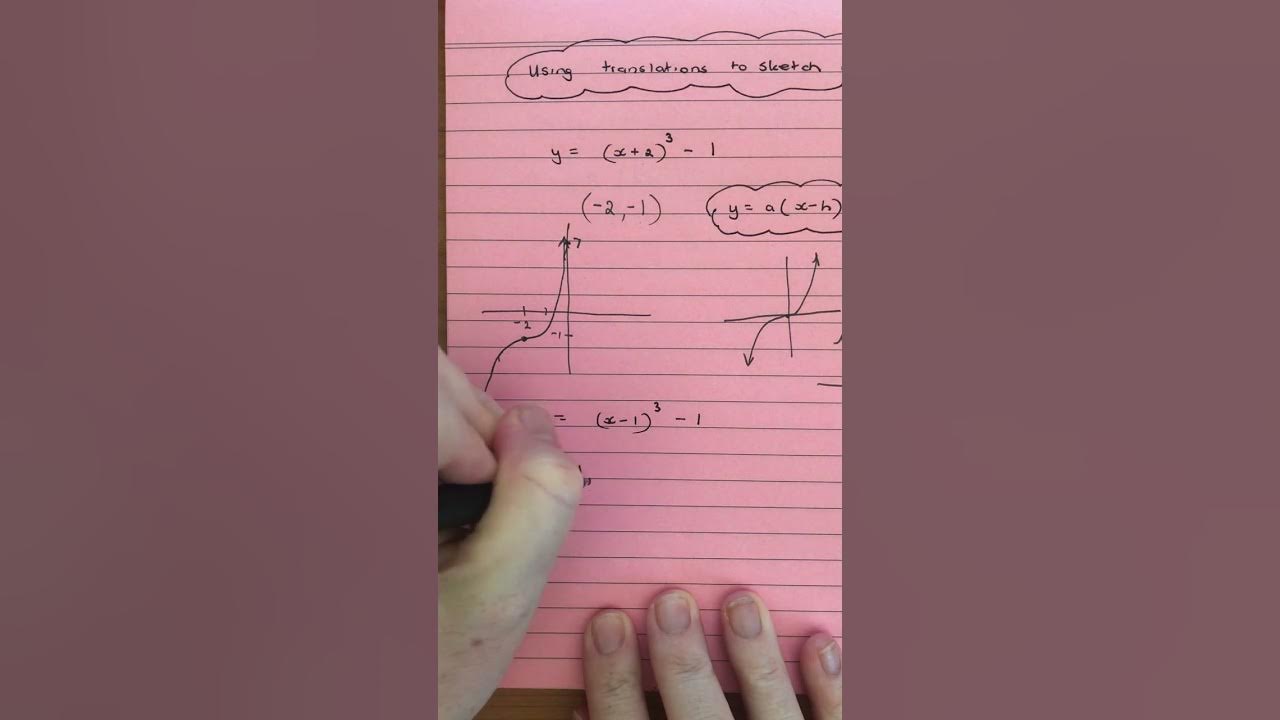 Using translations to sketch
y = (x+2)³ - 1
(-2,-1)
y = a(x-h)
7
-2
-1
= (x-1)³ - 1